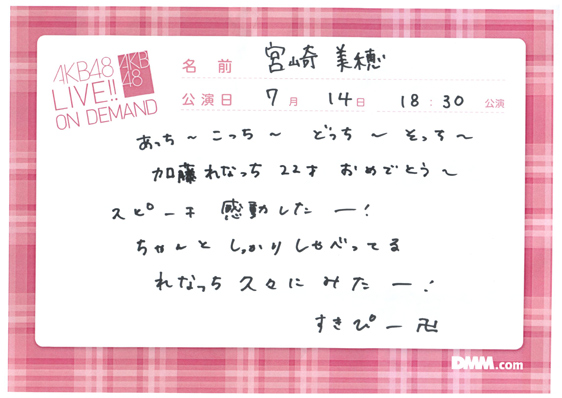 AKB48
LIVE!!
ON DEMAND
AKB
48
名 前 宮崎 美穂
公演日 7月 14日 18:30 公演
あっち〜こっち〜 どっち〜そっち〜
加藤れなっち 22才 おめでとう〜
スピーチ 感動したー！
ちゃんと しっかりしゃべってる
れなっち 久々に みたー！
すきぴー卍
DMM.com